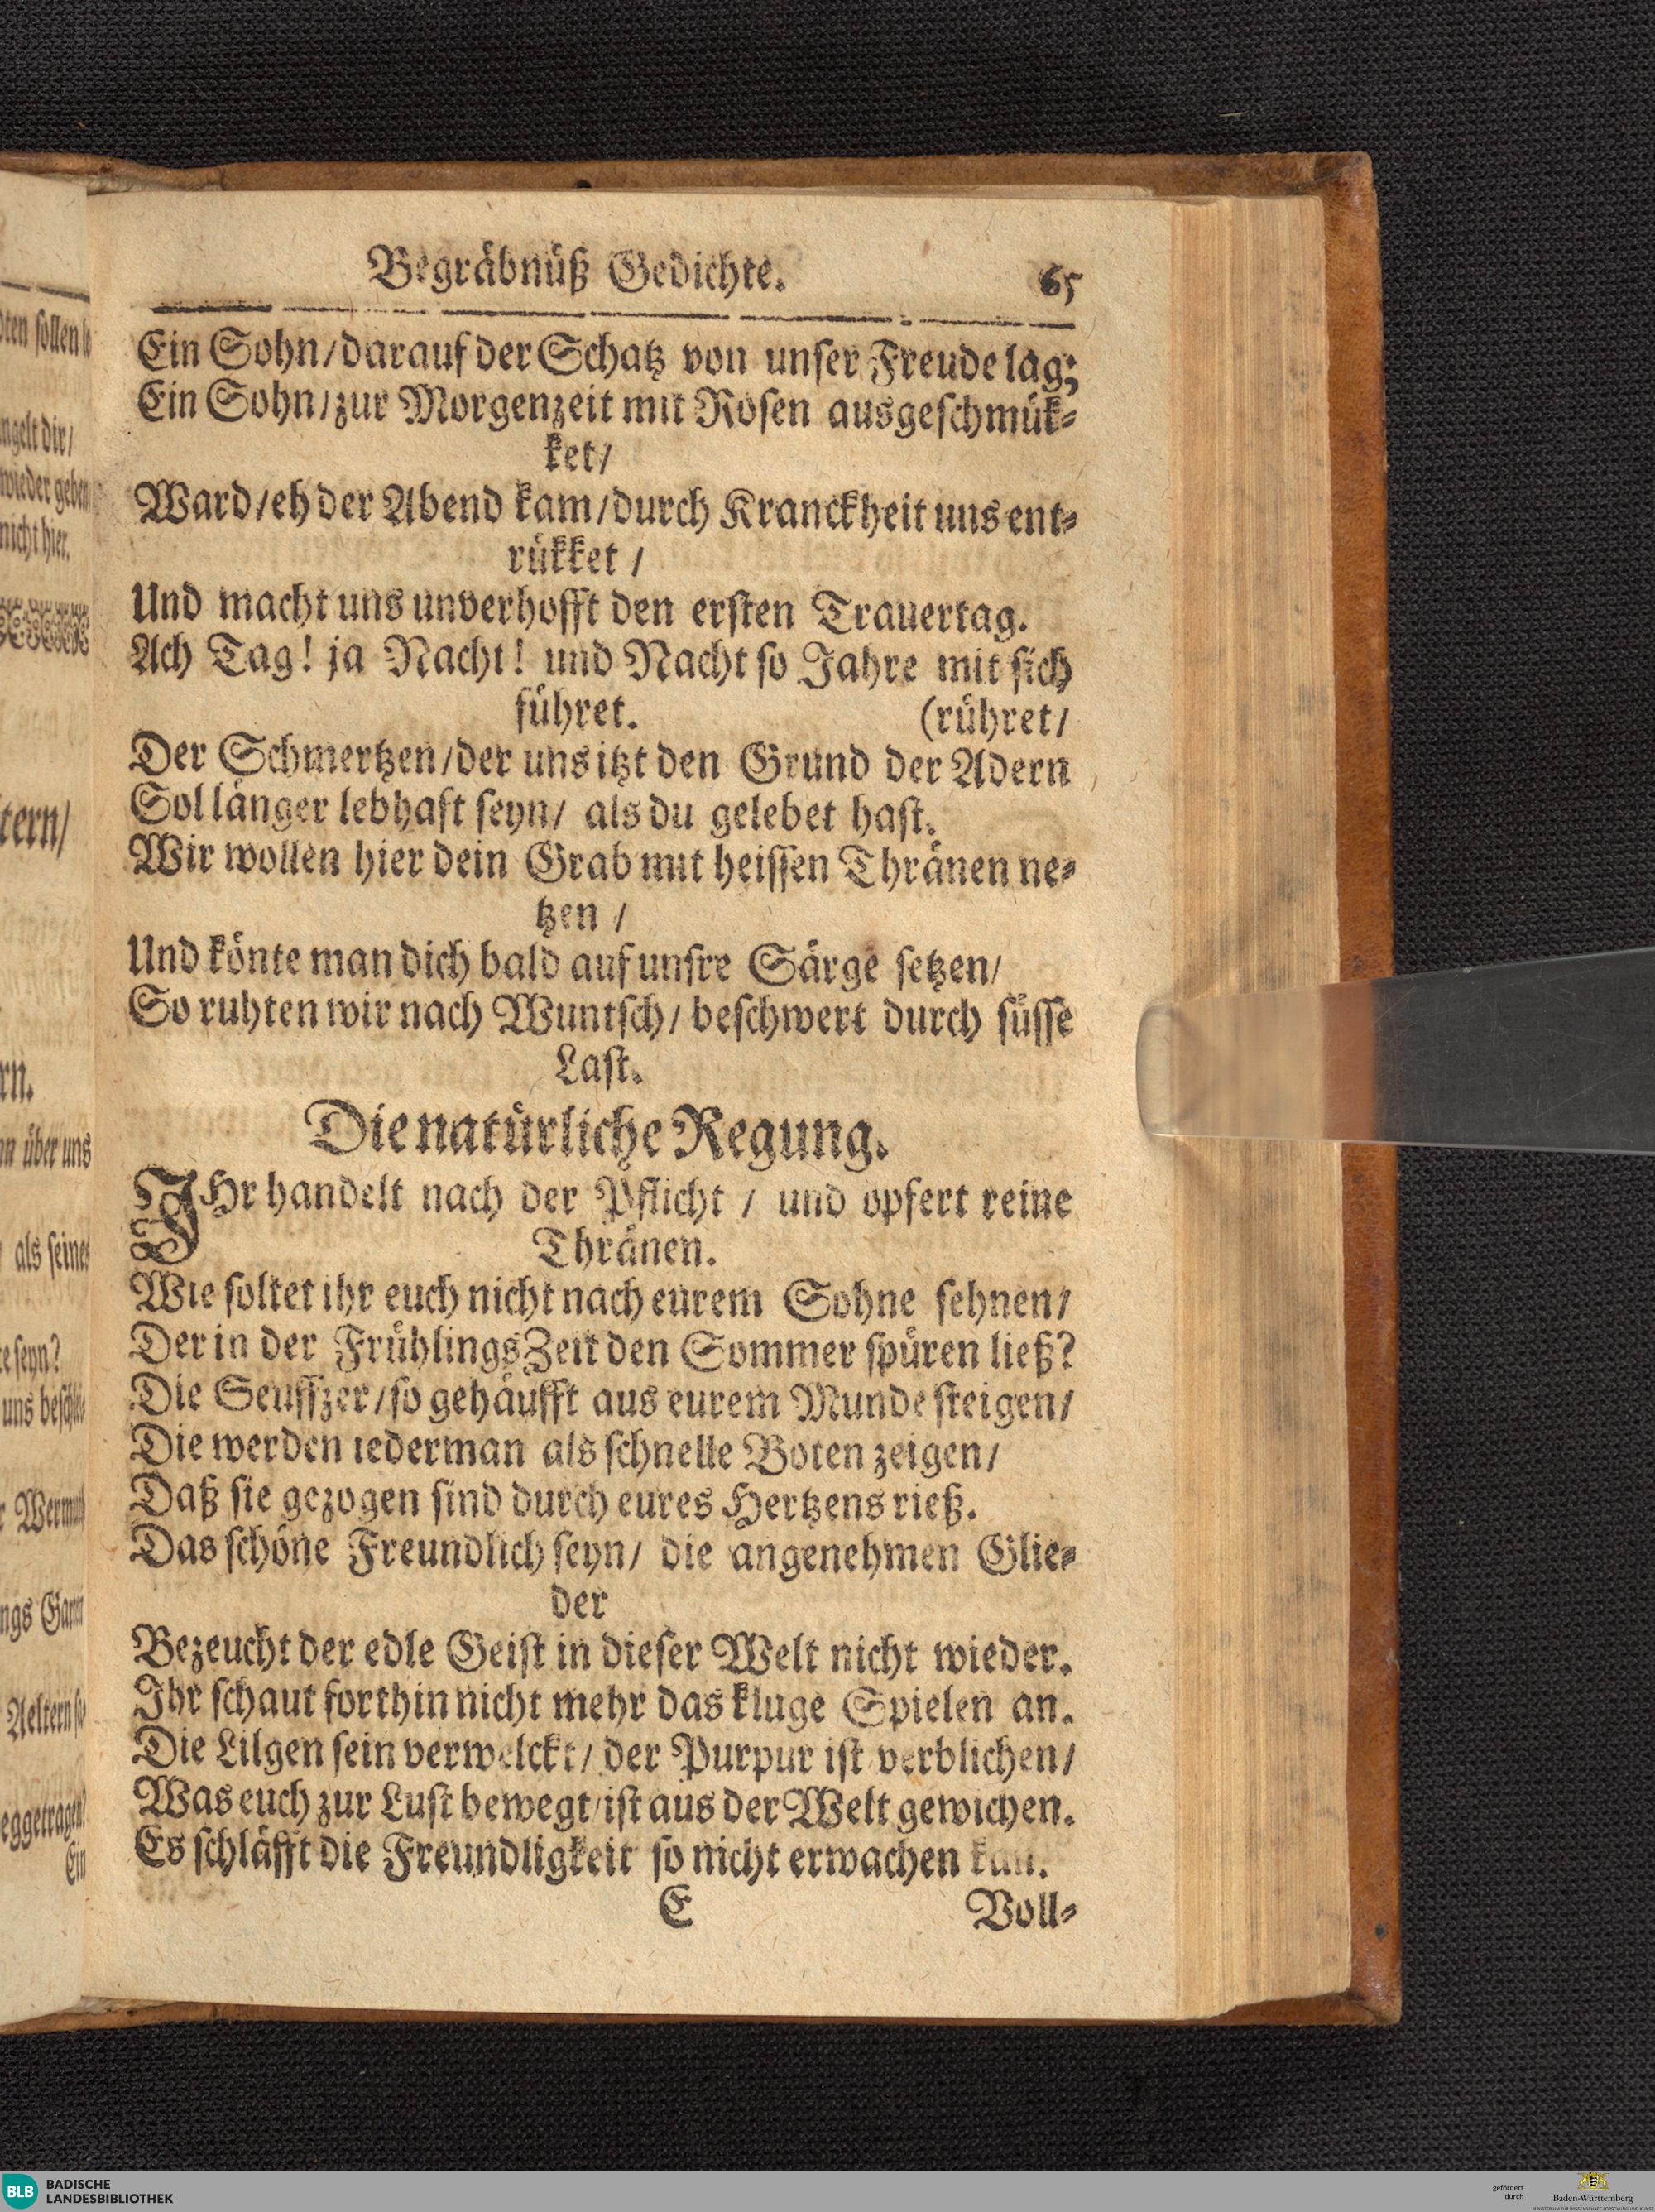 Begräbnüß Gedichte. 65
Ein Sohn/darauf der Schatz von unser Freude lag;
Ein Sohn/zur Morgenzeit mit Rosen ausgeschmük-
ket/
Ward/eh der Abend kam/durch Kranckheit uns ent-
rükket /
Und macht uns unverhofft den ersten Trauertag.
Ach Tag! ja Nacht! und Nacht so Jahre mit sich
führet. (rühret/
Der Schmertzen/der uns itzt den Grund der Adern
Sol länger lebhaft seyn/ als du gelebet hast.
Wir wollen hier dein Grab mit heissen Thränen ne-
tzen /
Und könte man dich bald auf unsre Särge setzen/
So ruhten wir nach Wuntsch/ beschwert durch süsse
Last.
Die natürliche Regung.
IHr handelt nach der Pflicht / und opfert reine
Thränen.
Wie soltet ihr euch nicht nach eurem Sohne sehnen/
Der in der FrühlingsZeit den Sommer spüren ließ?
Die Seuffzer/so gehäufft aus eurem Munde steigen/
Die werden iederman als schnelle Boten zeigen/
Daß sie gezogen sind durch eures Hertzens rieß.
Das schöne Freundlich seyn/ die angenehmen Glie-
der
Bezeucht der edle Geist in dieser Welt nicht wieder.
Ihr schaut forthin nicht mehr das kluge Spielen an.
Die Lilgen sein verwelckt/ der Purpur ist verblichen/
Was euch zur Lust bewegt/ist aus der Welt gewichen.
Es schläfft die Freundligkeit so nicht erwachen kan.
E Voll-
ten sollen
ngelt dir/
wieder geben
nicht hier.
tern/
rn.
über uns
als seines
seyn?
uns beschli-
ngs
Aeltern
eggetragen?
Ein
BLB BADISCHE
LANDESBIBLIOTHEK
gefördert
durch
Baden-Württemberg